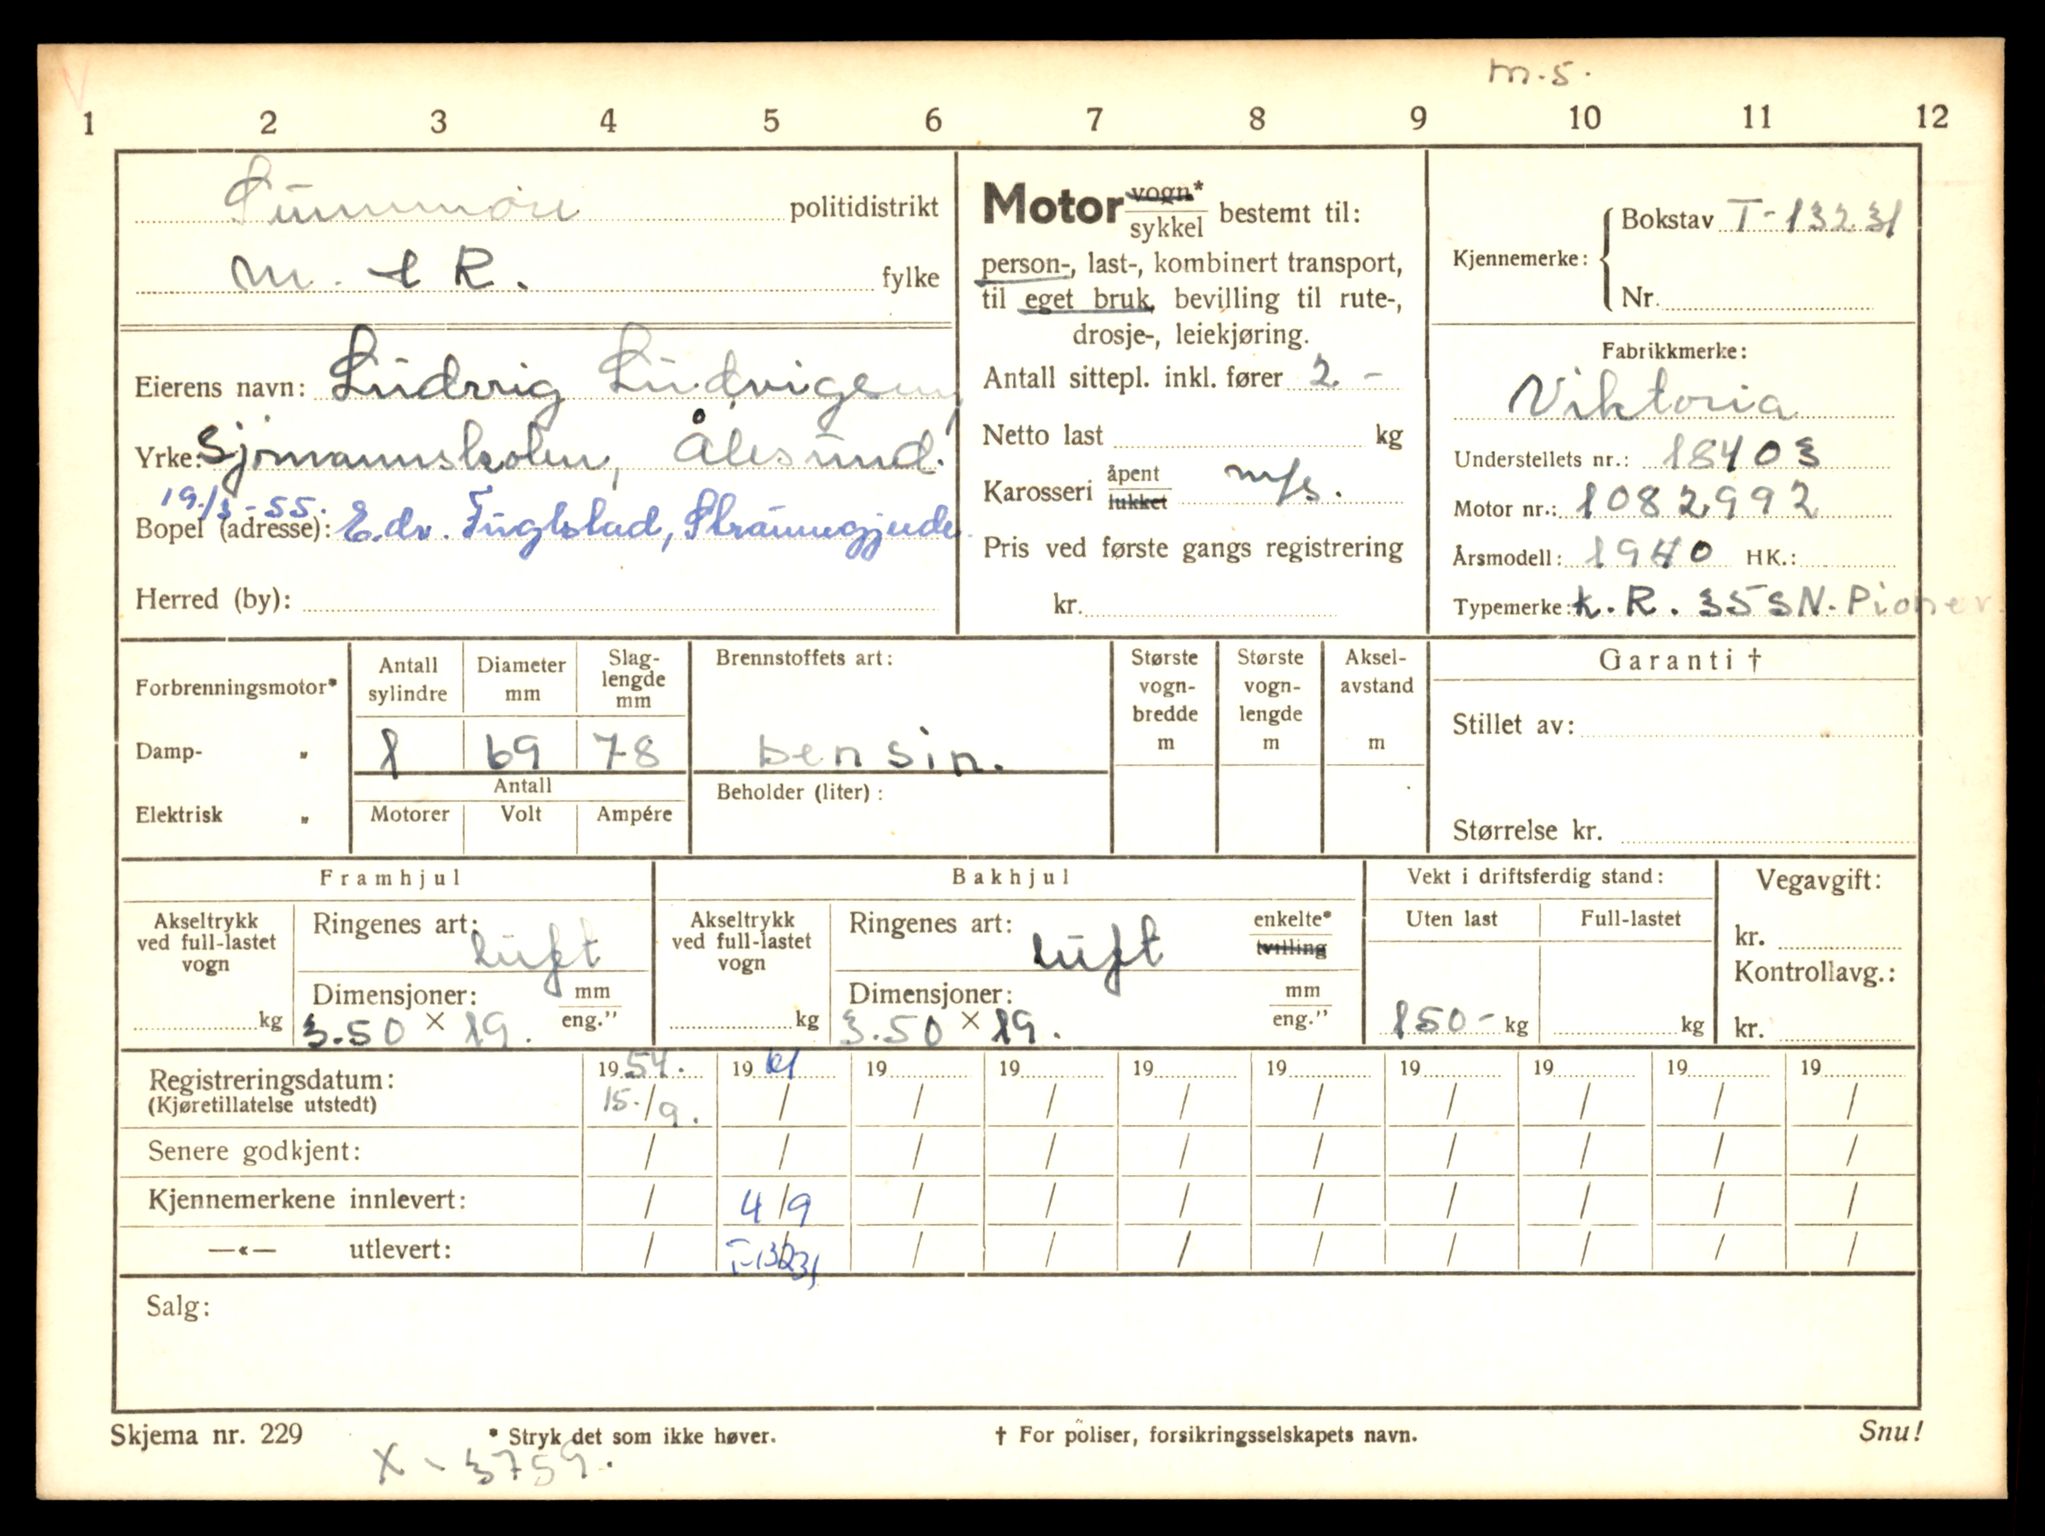 m.s.
1 2 3 4 5 6 7 8 9 10 11 12
Sunnmøre politidistrikt
M. & R. fylke
Eierens navn: Ludvig Ludvigsen,
Yrke: Sjømannskolen, Ålesund.
19./3-55.
Bopel (adresse): Edv. Fuglstad,
Herred (by):
Motor vogn* sykkel bestemt til:
person-, last-, kombinert transport,
til eget bruk, bevilling til rute-,
drosje-, leiekjøring.
Antall sittepl. inkl. fører 2 -
Netto last kg
Karosseri åpent lukket m/s.
Pris ved første gangs registrering
kr.
Kjennemerke: Bokstav T-13231
Nr.
Fabrikkmerke:
Viktoria
Understellets nr.: 18403
Motor nr.: 1082992
Årsmodell: 1940 HK.:
Typemerke: K.R. 35SN. Pioner.
Forbrenningsmotor*
Damp- „
Elektrisk „
Antall sylindre
Diameter mm
Slag- lengde mm
1 69 78
Antall
Motorer Volt Ampére
Brennstoffets art:
bensin.
Beholder (liter):
Største vogn- bredde m
Største vogn- lengde m
Aksel- avstand m
Garanti †
Stillet av:
Størrelse kr.
Framhjul
Akseltrykk ved full-lastet vogn
kg
Ringenes art: luft
Dimensjoner: mm eng.”
3.50 × 19.
Bakhjul
Akseltrykk ved full-lastet vogn
kg
Ringenes art: luft enkelte* tvilling
Dimensjoner: mm eng.”
3.50 × 19.
Vekt i driftsferdig stand:
Uten last Full-lastet
150- kg kg
Vegavgift:
kr.
Kontrollavg.:
kr.
Registreringsdatum: 1954. 1961 19 19 19 19 19 19 19 19
(Kjøretillatelse utstedt) 15./9. / / / / / / / / /
Senere godkjent: / / / / / / / / / /
Kjennemerkene innlevert: / 4/9 / / / / / / / /
—«— utlevert: / T-13231 / / / / / / / /
Salg:
Skjema nr. 229 * Stryk det som ikke høver. † For poliser, forsikringsselskapets navn. Snu!
X - 3759.